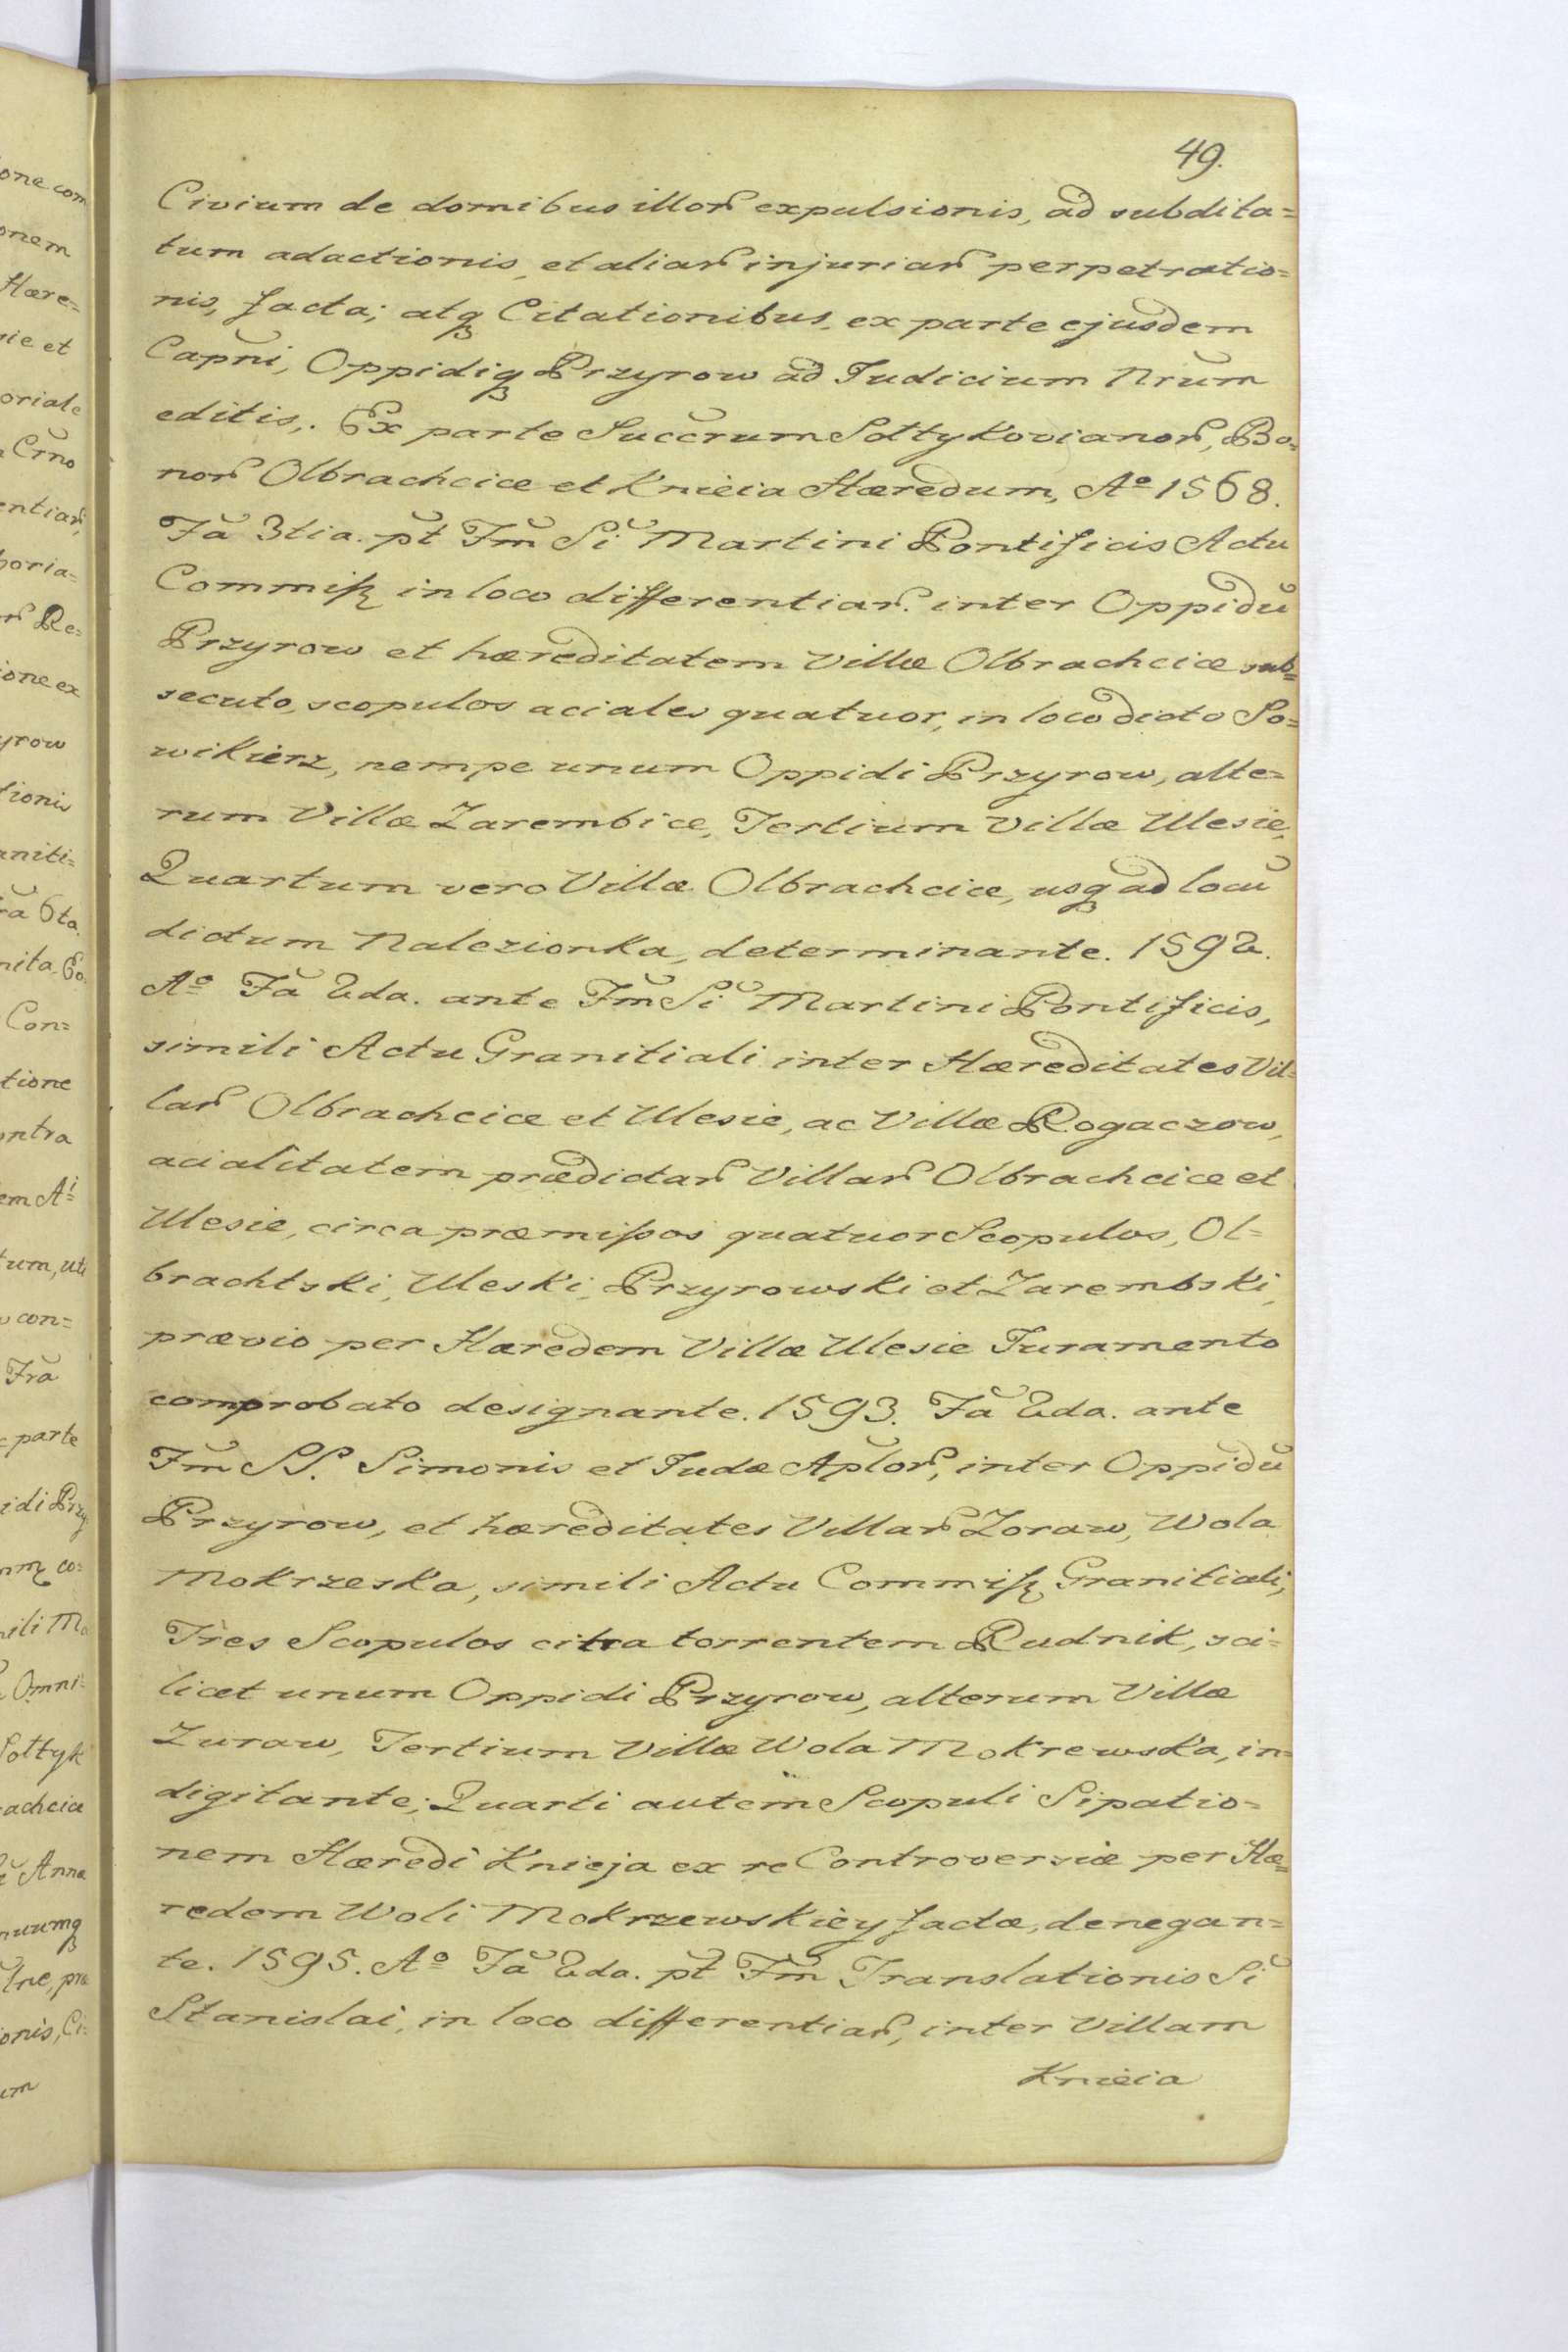 49.
Civium de domibus illor̃ expulsionis, ad subdita=
tum adactionis, et aliar̃ injuriar̃ perpetratio=
nis, facta; atq̨ Citationibus, ex parte ejusdem
Capñi, Oppidiq̨ Przyrow ad Judicium Nrũm
editis,. Ex parte Succr̃um Sołtykovianor̃, Bo=
nor̃ Olbrachcice et Knieia Hæredum, Aº 1568.
Fã 3tia. pt̃ Fm̃ Si̇̃ Martini Pontificis Actu
Commiſz in loco differentiar̃ inter Oppidũ
Przyrow et hæreditatem Villæ Olbrachcice sub=
secuto, scopulos aciales quatuor, in loco dicto So=
wikierz, nempe unum Oppidi Przyrow, alte=
rum Villæ Zarembice, Tertium Villæ Ulesie,
Quartum vero Villæ Olbrachcice, usq̨ ad locũ
dictum Nalezionka, determinante. 1592.
Aº Fã 2da. ante Fm̃ Si̇̃ Martini Pontificis,
simili Actu Granitiali inter Hæreditates Vil=
lar̃ Olbrachcice et Ulesie, ac Villæ Rogaczow,
acialitatem prædictar̃ Villar̃ Olbrachcice et
Ulesie, circa præmiſsos quatuor Scopulos, Ol=
brachtski, Uleski, Przyrowski et Zarembski,
prævio per Hæredem Villæ Ulesie Juramento
comprobato designante. 1593. Fã 2da. ante
Fm̃ SS. Simonis et Judæ Aplor̃, inter Oppidũ
Przyrow, et hæreditates Villar̃ Zoraw, Wola
Mokrzeska, simili Actu Commiſz Granitiali,
Tres Scopulos citra torrentem Rudnik, sci=
licet unum Oppidi Przyrow, alterum Villæ
Zuraw, Tertium Villæ Wola Mokrewska, in=
digitante; Quarti autem Scopuli Sipatio=
nem Hæredi Knieja ex re Controversiæ per Hæ=
redem Woli Mokrzewskiey factæ, denegan=
te. 1595. Aº Fã 2da. pt̃ Fm̃ Translationis Si̇̃
Stanislai, in loco differentiar̃, inter Villam
Knieia